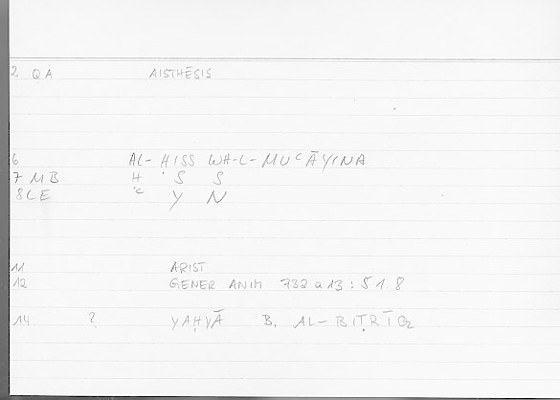 2 QA AISTHĒSIS
6 AL- ḤISS WA-L-MUʿĀYINA
7 MB Ḥ S S
8 LE ʿ Y N
11 ARIST
12 GENER ANIM 732 a 13 : 51.8
14 2 YAḤYĀ B. AL-BIṬRĪQ